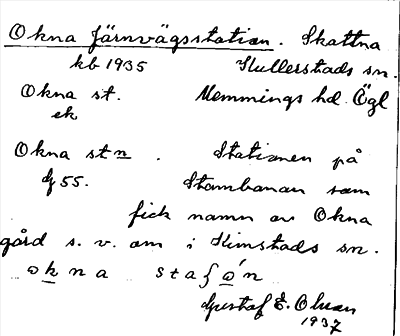 Okna järnvägsstation. Skattna
kb 1935 Kullerstads sn.
Okna st. Memmings hd. Ögl
ek
Okna stn. Stationen på
gj 55. Stambanan som
fick namn av Okna
gård s. v. om i Kimstads sn.
okna staʃo´n
Gustaf E. Olsson
1937